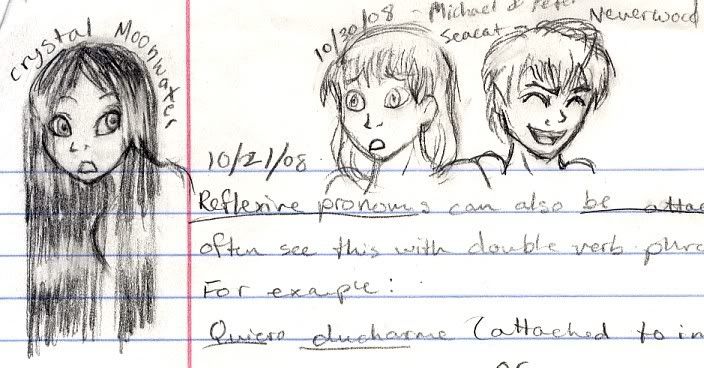 Crystal Moonwater
10/30/08 - Michael & Peter
Seacat - Neverwood
10/21/08
Reflexive pronouns can also be attac
often see this with double verb phra
For example:
Quiero ducharme (attached to in
or